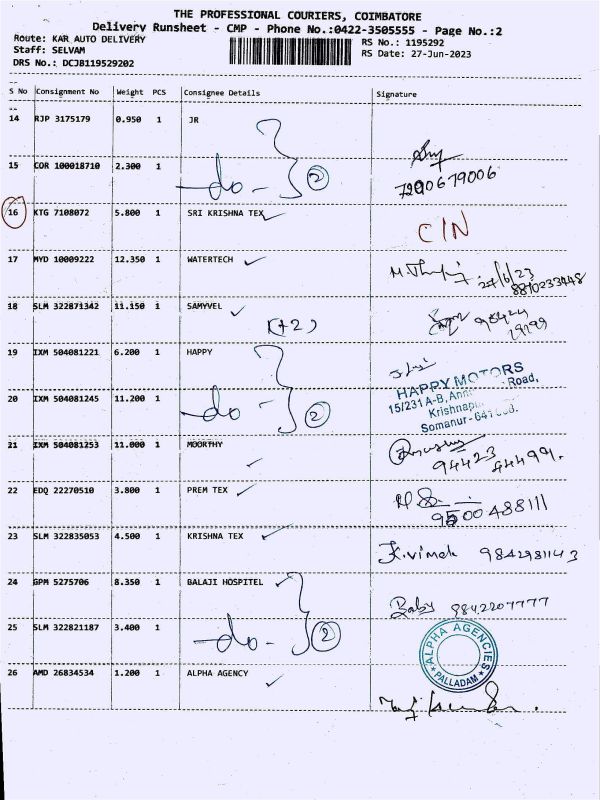 THE PROFESSIONAL COURIERS, COIMBATORE
Delivery Runsheet - CMP - Phone No.:0422-3505555 - Page No.:2
Route: KAR AUTO DELIVERY
RS No.: 1195292
Staff: SELVAM
RS Date: 27-Jun-2023
DRS No.: DCJB119529202
S No Consignment No Weight PCS Consignee Details Signature
14 RJP 3175179 0.950 1 JR
15 COR 100018710 2.300 1 -do- 2
7200679006
16 KTG 7108072 5.800 1 SRI KRISHNA TEX CIN
17 MYD 10009222 12.350 1 WATERTECH 27/6/23
8810233448
18 SLM 322871342 11.150 1 SAMYVEL
(+2)
19 IXM 504081221 6.200 1 HAPPY
HAPPY MOTORS
15/231 A-B, Road,
20 IXM 504081245 11.200 1 -do- 2
Somanur-641
21 IXM 504081253 11.000 1 MOORTHY
94423
44499.
22 EDQ 22270510 3.800 1 PREM TEX
9500488111
23 SLM 322835053 4.500 1 KRISHNA TEX K.vimal 9842981143
24 GPM 5275706 8.350 1 BALAJI HOSPITEL
Baby 9842207777
25 SLM 322821187 3.400 1 -do- 2
ALPHA AGENCIES
PALLADAM
26 AMD 26834534 1.200 1 ALPHA AGENCY